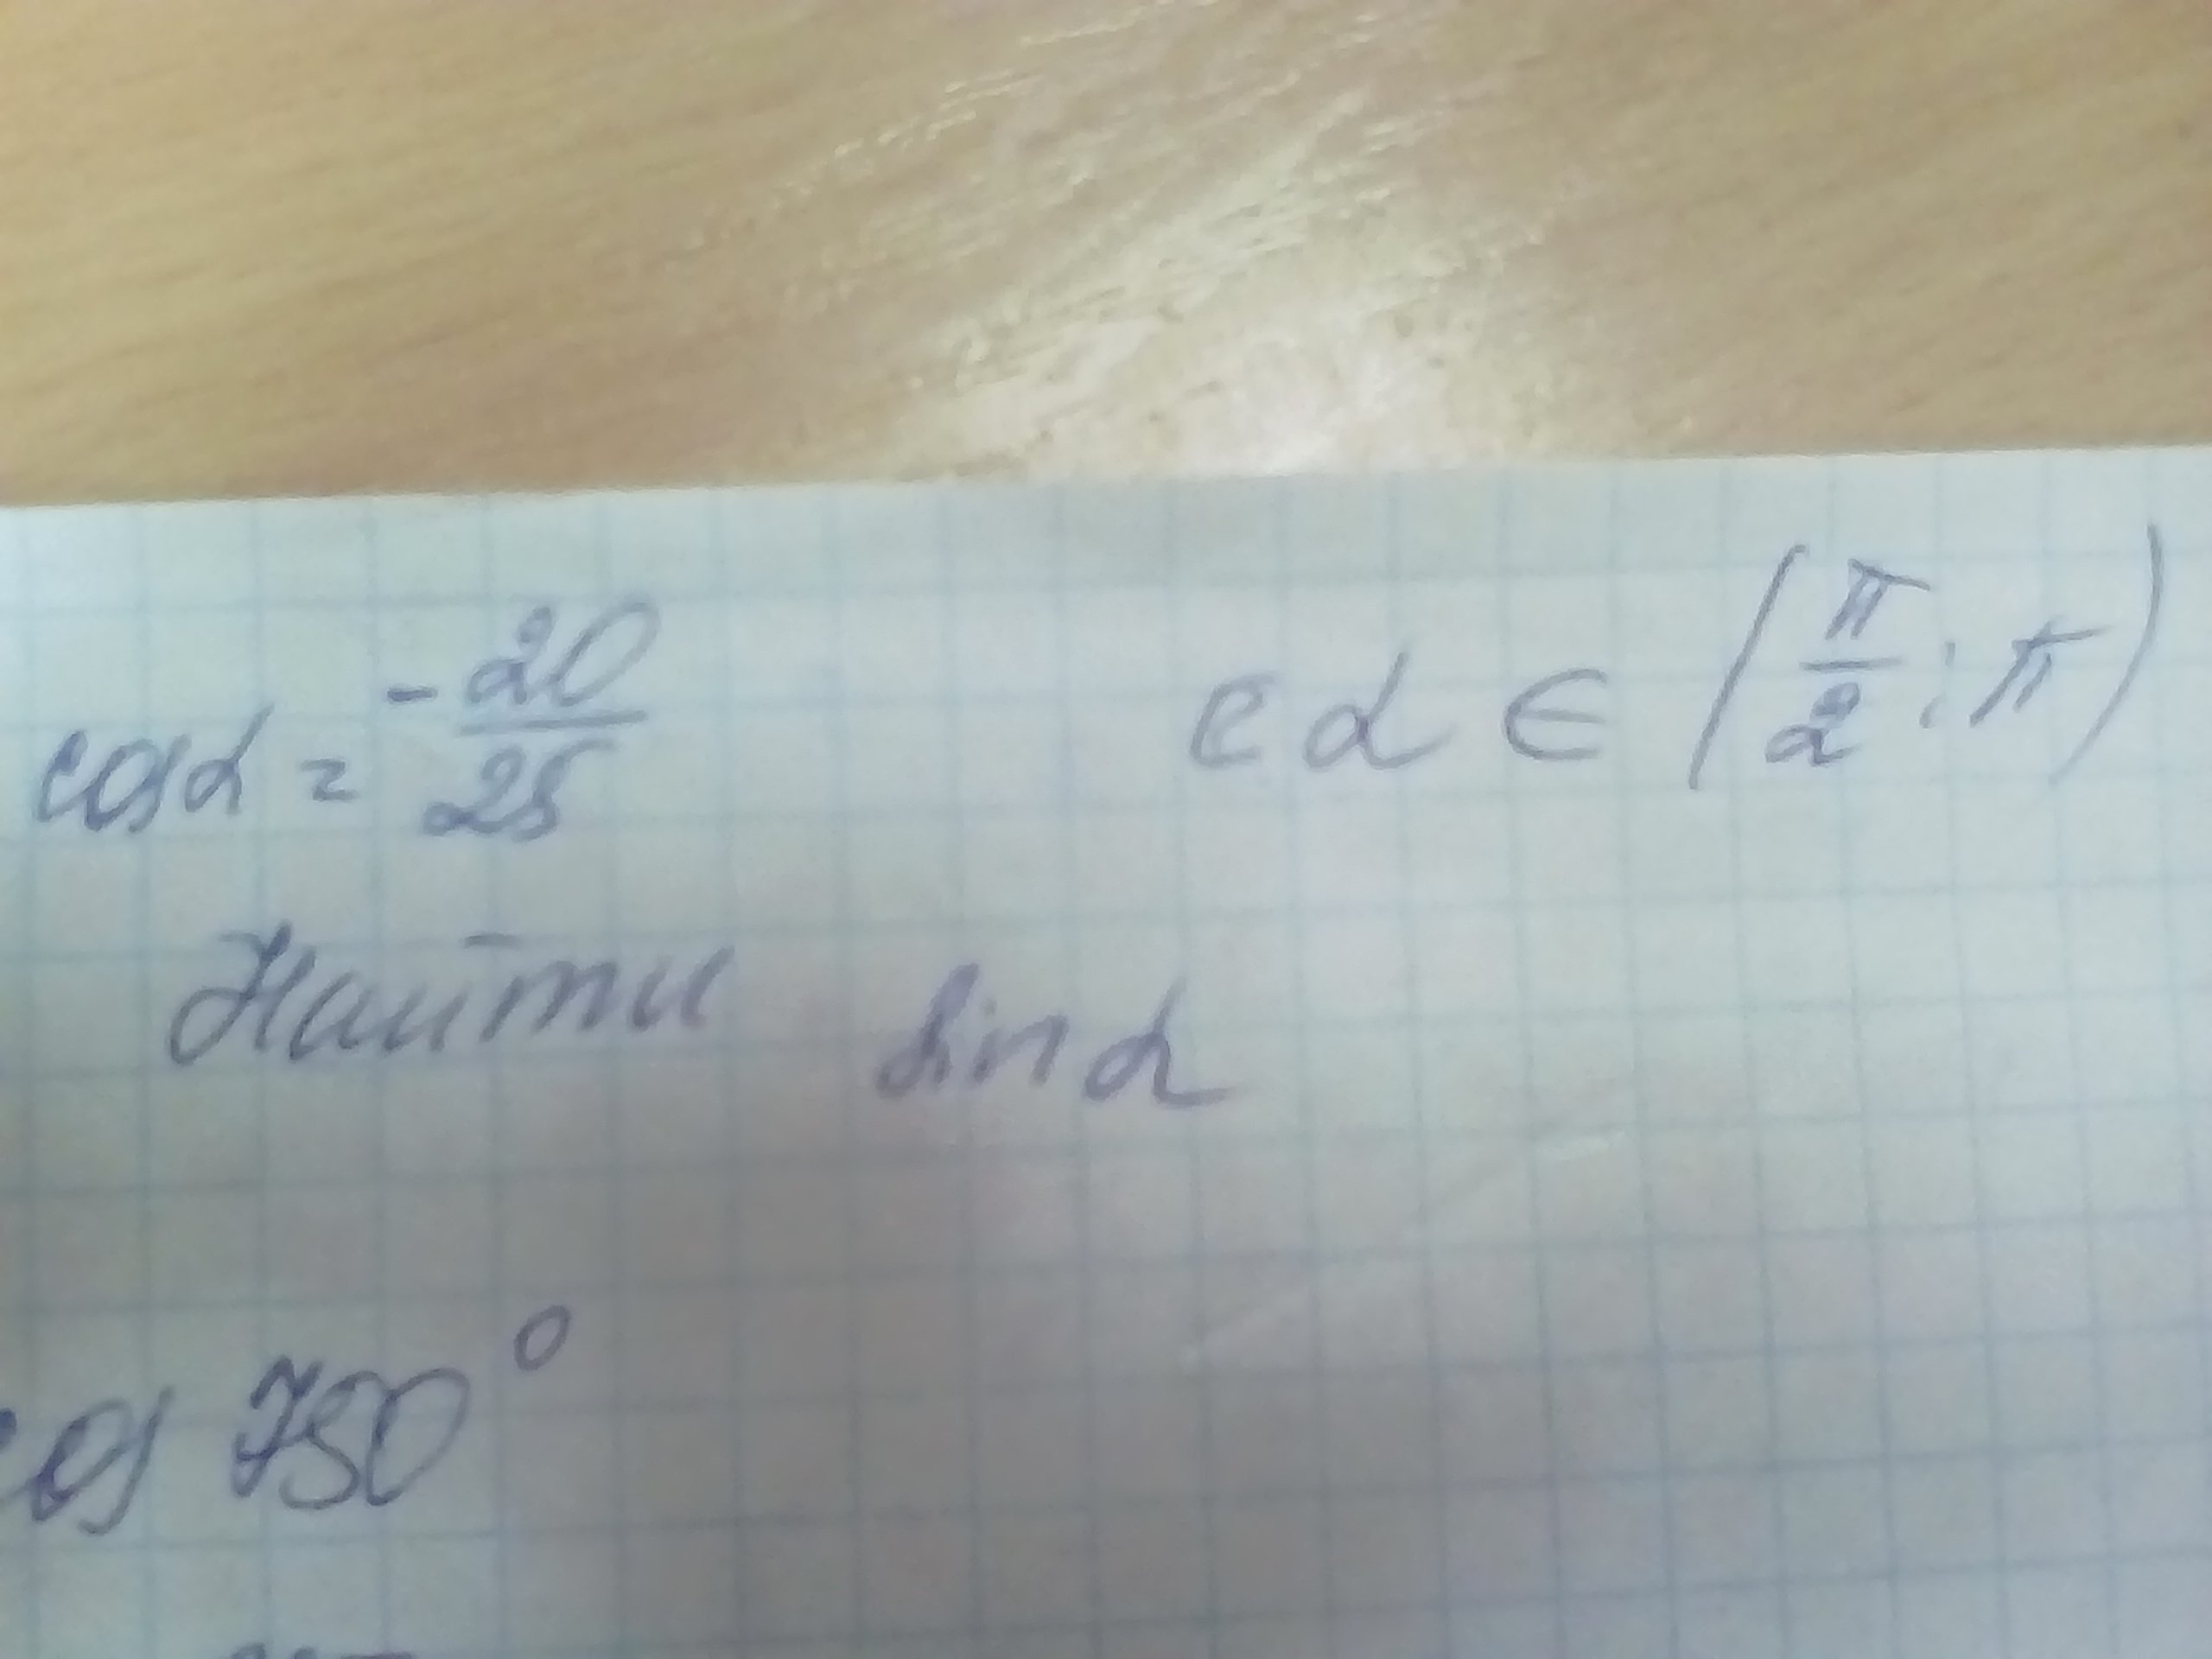 cos α = -20/25   e α ∈ (π/2; π)
Найти sin α
cos 750°